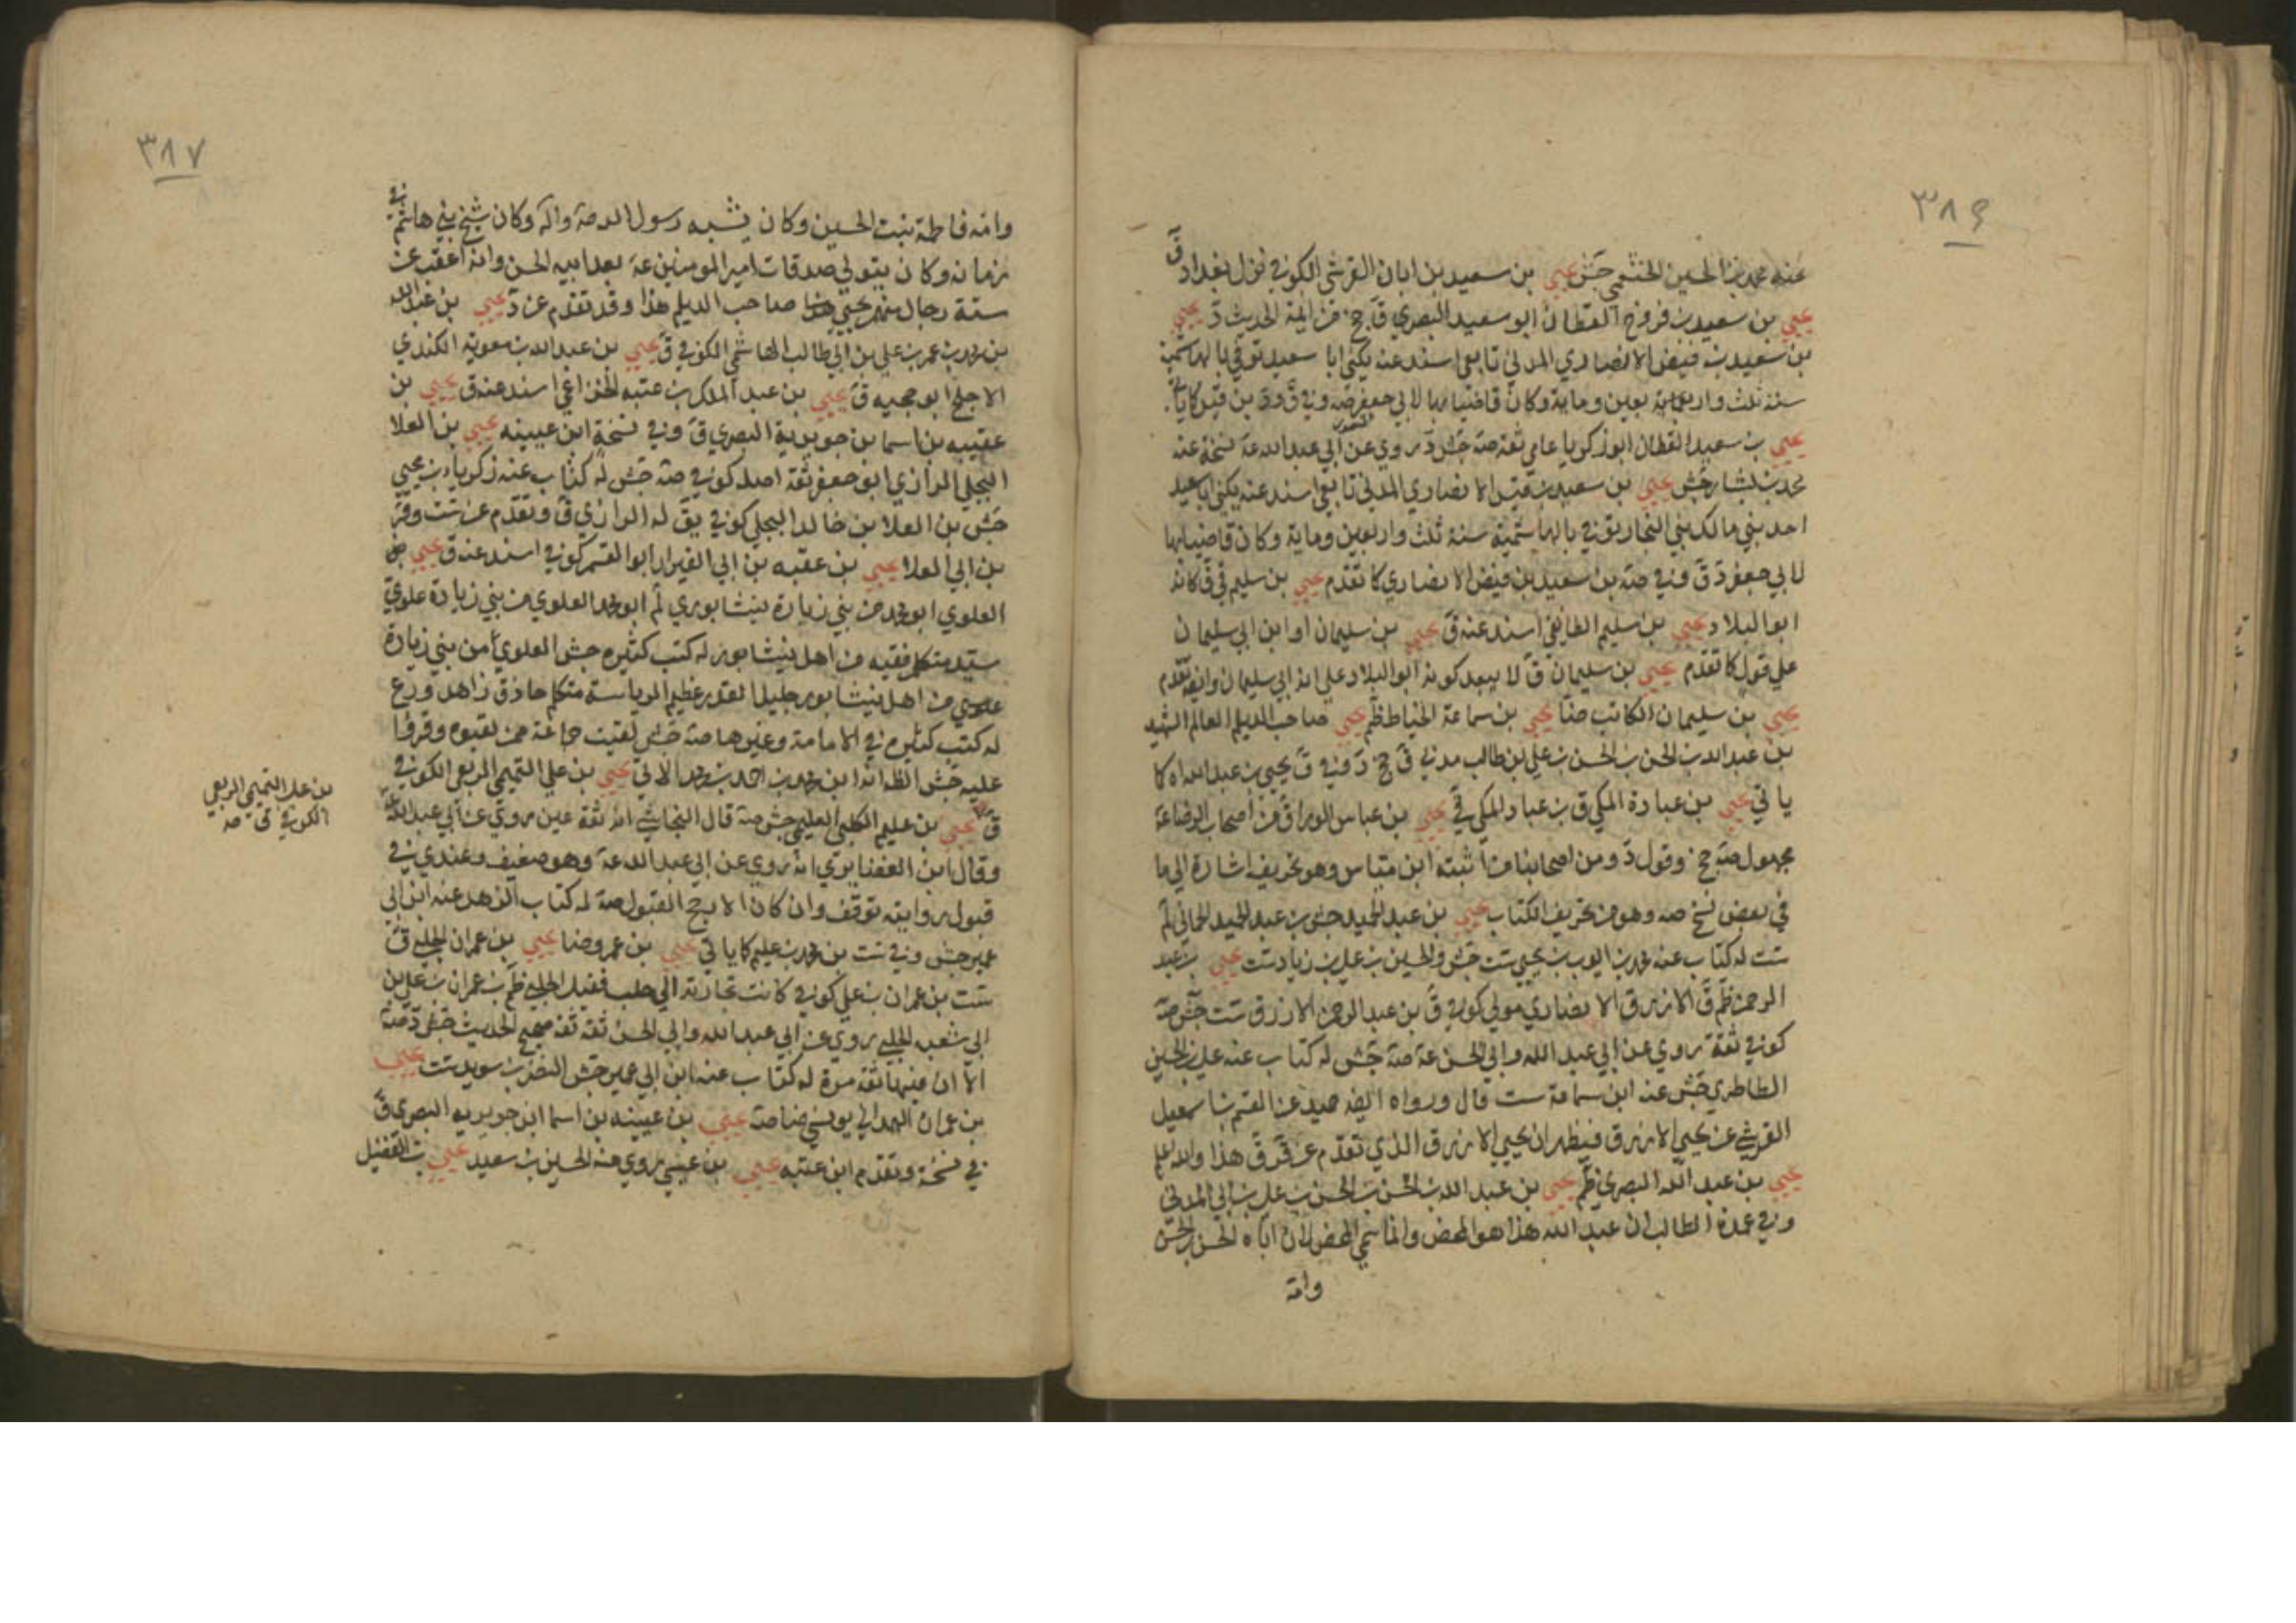 ٣٨٦
عنه محمد بن الحسين الخثعمي جش يحيى بن سعيد بن ابان القرشي الكوفي نزل بغداد ق
يحيى بن سعيد بن فروخ القطان ابو سعيد البصري ق جخ من ايمة الحديث د يحيى
بن سعيد بن فيض الانصاري المدني تابعي اسند عنه يكنى ابا سعيد توفي بالهاشمية
سنة ثلث واربعين وماية وكان قاضيا بها لابي جعفر صه وفي ق ود بن قيس كما ياتي
يحيى بن سعيد القطان ابو زكريا عامي ثقة صه جش د روى عن ابي عبد الله عه نسخة عنه
محمد بن بشار جش يحيى بن سعيد بن قيس الانصاري المدني تابعي اسند عنه يكنى ابا سعيد
احد بني مالك بني النجار توفي بالهاشمية سنة ثلث واربعين وماية وكان قاضيا بها
لابي جعفر د ق وفي صه بن سعيد بن فيض الانصاري كما تقدم يحيى بن سليم في ق كانه
ابو البلاد يحيى بن سليم الطايفي اسند عنه ق يحيى بن سليمان او ابن ابي سليمان
على قول كما تقدم يحيى بن سليمان ق لا يبعد كونه ابو البلاد على انه ابي سليمان وانه تقدم
يحيى بن سليمان الكاتب ضا يحيى بن سماعة الخياط ظم يحيى صاحب الديلم العالم الشهيد
بن عبد الله بن الحسن بن الحسن بن علي بن طالب مدني ق جخ د وفي ق يحيى بن عبد الله اه كما
ياتي يحيى بن عبادة المكي ق بن عباد المكي في يحيى بن عباس الوراق ق من اصحاب الرضا عه
مجهول صه جخ وقول د ومن اصحابنا من اثبته ابن مقياس وهو تحريف اشارة الى ما
في بعض نسخ صه وهو من تحريف الكتاب يحيى بن عبد الحميد جش بن عبد الحميد الحماني لم
ست له كتاب عنه محمد بن ايوب بن يحيى ست جش والحسين بن علي بن زياد ست يحيى بن عبد
الرحمن ظم ق الازرق الانصاري مولى كوفي ق بن عبد الرحمن الازرق ست جش صه
كوفي ثقة روى عن ابي عبد الله وابي الحسن عه صه جش له كتاب عنه علي بن الحسين
الطاطري جش عنه ابن سماعة ست قال ورواه ايضا حميد عن القسم بن اسمعيل
القرشي عن يحيى الازرق فيظهر ان يحيى الازرق الذي تقدم عن ق ر ق هذا والله اعلم
يحيى بن عبد الله البصري ظم يحيى بن عبد الله بن الحسن بن الحسن بن علي بن ابي المدني
وفي عمدة الطالب ان عبد الله هذا هو المحض وانما سمي المحض لان اباه الحسن بن الحسن
وامه
٣٨٧
وامه فاطمة بنت الحسين وكان يشبه رسول الله صه واله وكان شيخ بني هاشم في
زمانه وكان يتولى صدقات امير المومنين عه بعد ابيه الحسن وانه اعقب عن
ستة رجال منهم يحيى هذا صاحب الديلم هذا وقد تقدم عن د يحيى بن عبد الله
بن محمد بن عمر بن علي بن ابي طالب الهاشمي الكوفي ق يحيى بن عبد الله بن معوية الكندي
الاجلح ابو حجيه ق يحيى بن عبد الملك بن عتبه الخزاعي اسند عنه ق يحيى بن
عقيبه بن اسما بن جويرية البصري ق وفي نسخة ابن عيينه يحيى بن العلا
البجلي الرازي ابو جعفر ثقة اصله كوفي صه جش له كتاب عنه زكريا بن يحيى
جش بن العلا بن خالد البجلي كوفي يق له الرازي ق وتقدم عن ست وقر
بن ابي العلا يحيى بن عقبه بن ابي العيزار ابو القسم كوفي اسند عنه ق يحيى
العلوي ابو محمد من بني زبارة نيشابوري لم ابو محمد العلوي من بني زبارة علوي
سيد متكلم فقيه من اهل نيشابور له كتب كثيره جش العلوي من بني زبارة
علوي من اهل نيشابور جليل القدر عظيم الرياسة متكلم حاذق زاهد ورع
له كتب كثيره في الامامة وغيرها صه جش لقيت جماعة ممن لقيوه وقروا
عليه جش الظ انه ابن محمد بن احمد بن محمد الاتي يحيى بن علي التميمي الربعي الكوفي
ق يحيى بن عليم الكلبي العليمي جش صه قال النجاشي انه ثقة عين روى عن ابي عبد الله عه
وقال ابن الغضايري انه روى عن ابي عبد الله عه وهو ضعيف وعندي في
قبول روايته توقف وان كان الارجح القبول صه له كتاب الزهد عنه ابن ابي
عمير جش وفي ست بن محمد بن عليم كما ياتي يحيى بن عمرو ضا يحيى بن عمران الحلبي ق
ست بن عمران بن علي كوفي كانت تجارته الى حلب فقيل الحلبي ظم بن عمران بن علي بن
ابي شعبه الحلبي روى عن ابي عبد الله وابي الحسن ثقة ثقة صحيح الحديث جش د صه
الا ان فيها ثقة مرة له كتاب عنه ابن ابي عمير جش النضر بن سويد ست يحيى
بن عمران الهمداني يونسي ضا صه يحيى بن عيينه بن اسما ابن جويريه البصري ق
في نسخة وتقدم ابن عتبه يحيى بن عيسى روى عنه الحسين بن سعيد يحيى بن الفضيل
بن علي التميمي الربعي
الكوفي ق صه